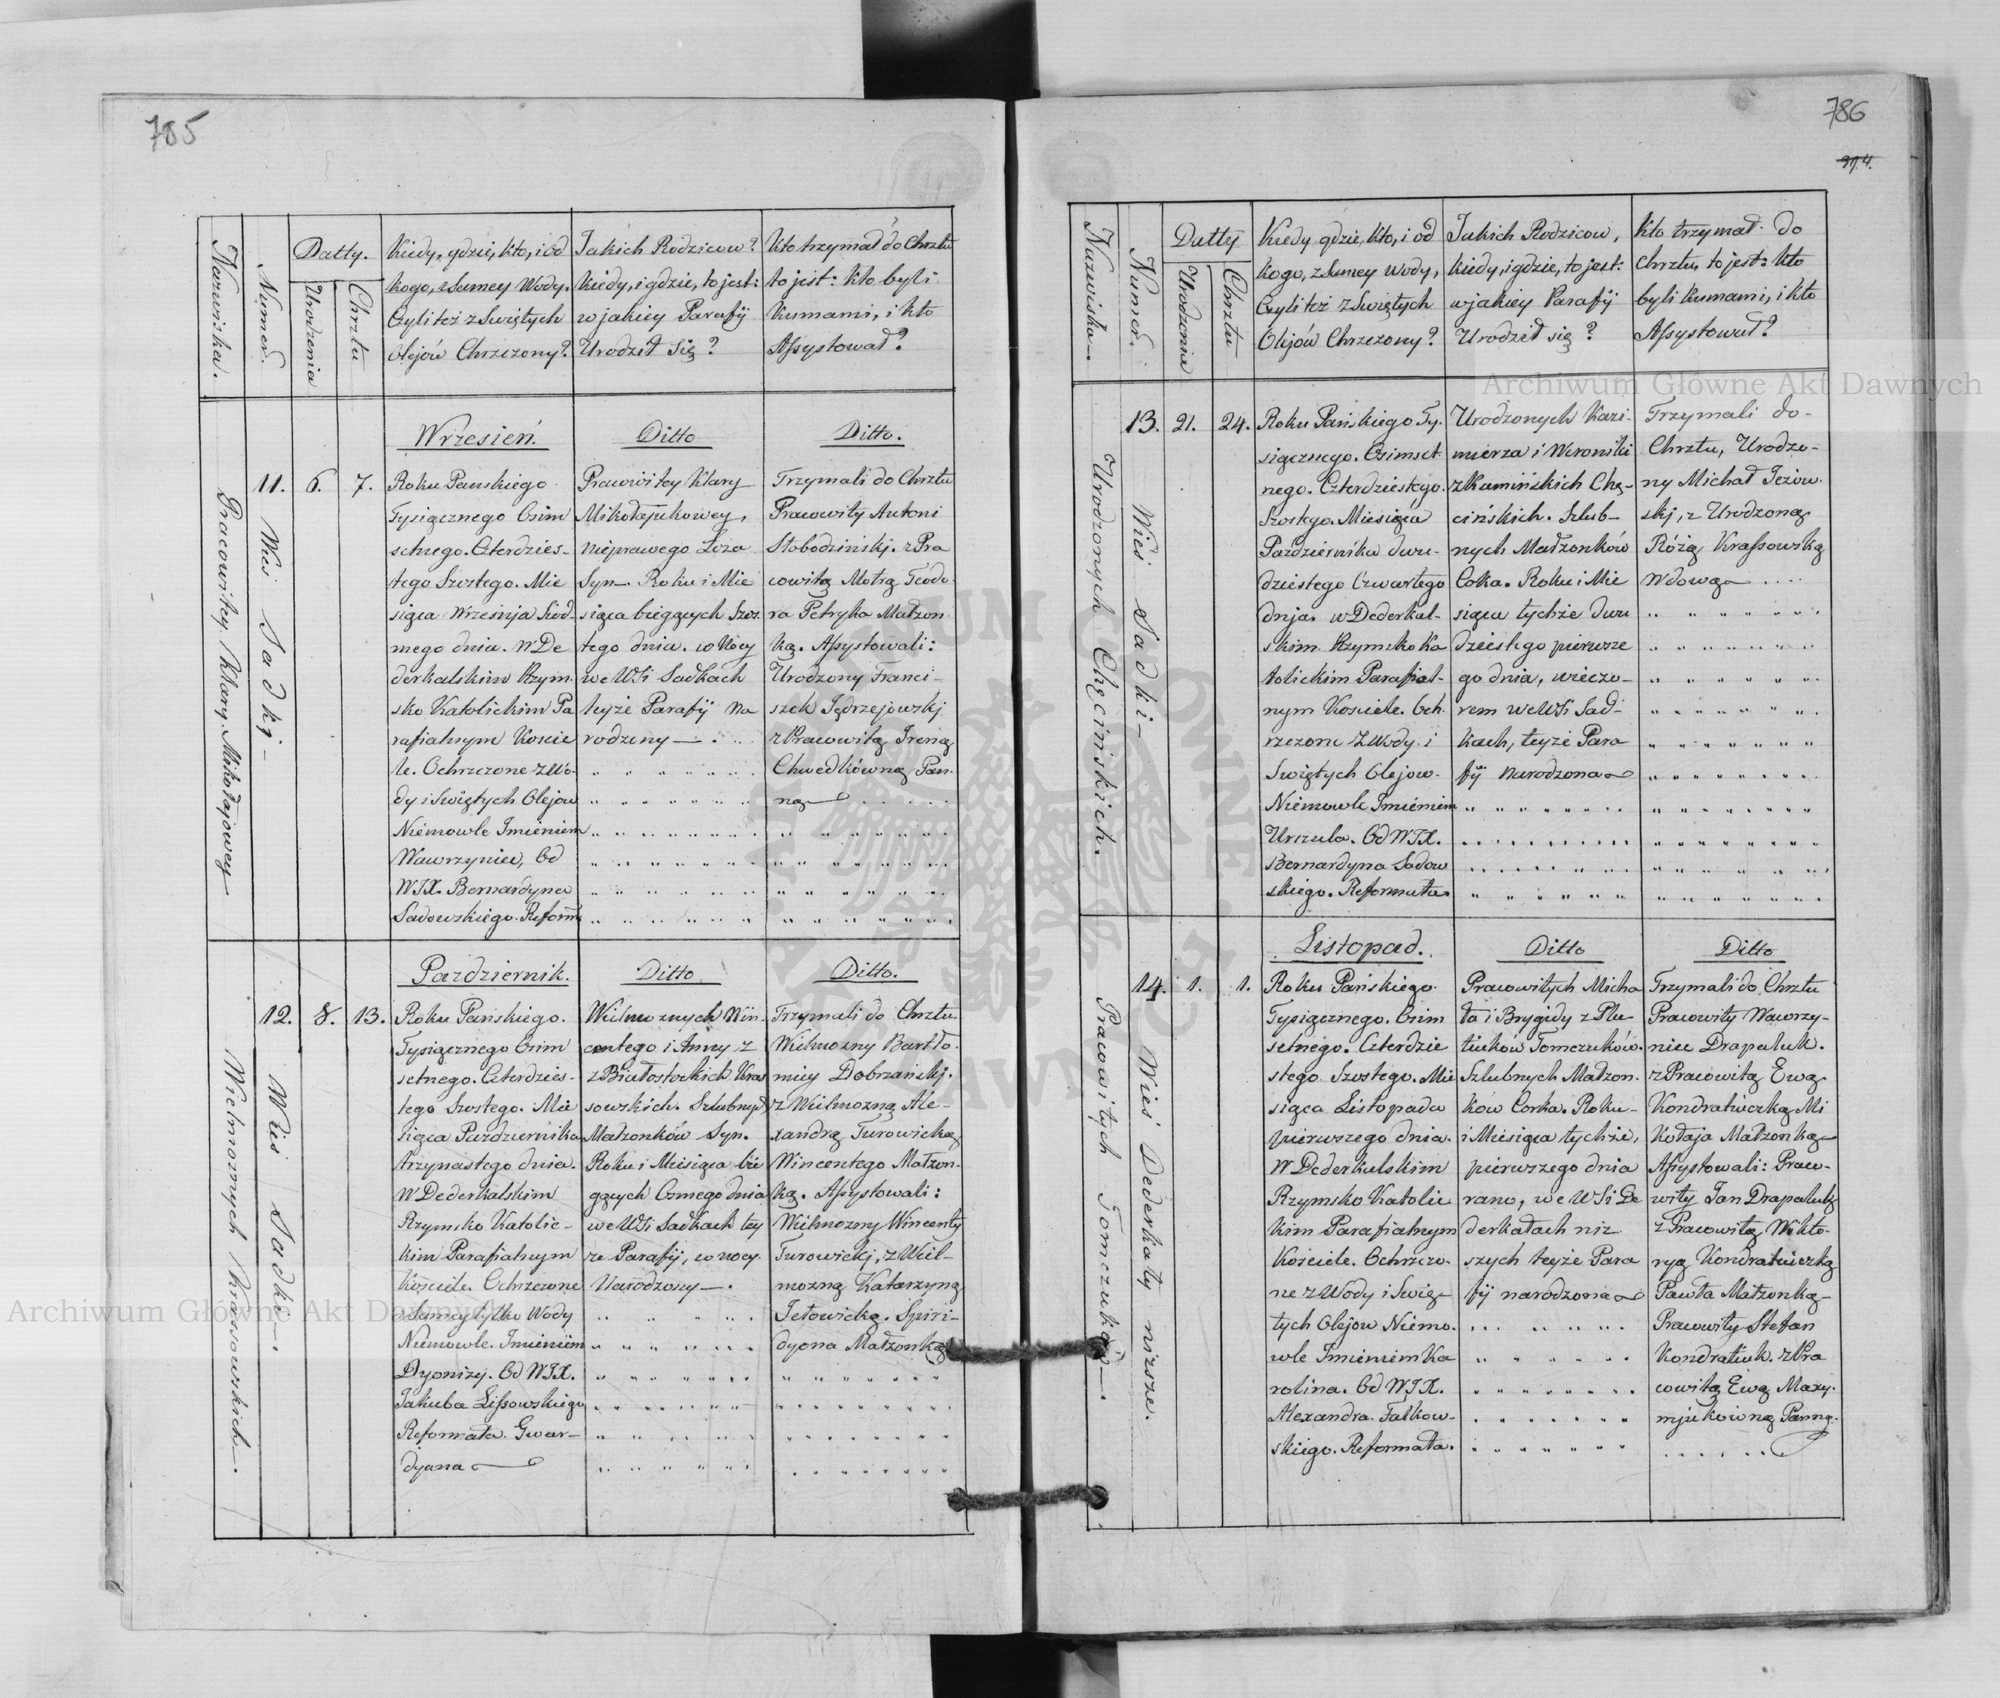 785
Nazwiska.
Numer.
Datty.
Urodzenia
Chrztu
Kiedy, gdzie, kto, i od
kogo, z Samey Wody.
Czyli też z Swiętych
Olejów Chrzczony?
Jakich Rodzicow?
Kiedy, i gdzie, to jest:
w jakiey Parafij
Urodził Się?
Kto trzymał do Chrztu
to jest: Kto byli
Kumami, i kto
Assystował?
Pracowitey Klary Mikołajowey
Wieś Sadki
11.
6.
7.
Wrzesień.
Roku Panskiego
Tysiącznego Ośm
setnego. Czterdzies-
tego Szostego. Mie
siąca Września Siód-
mego dnia. W De
derkalskim Rzym.
sko Katolickim Pa
rafialnym Koscie
le. Ochrzczone z Wo-
dy i Swiętych Olejow
Niemowle Imieniem
Wawrzyniec, Od
WJX. Bernardyna
Sadowskiego. Reform
Ditto
Pracowitey Klary
Mikołajukowey,
nieprawego Łoza
Syn. Roku i Mie
siąca bieżących Szos
tego dnia. w Nocy
we WSi Sadkach
teyże Parafij Na
rodzony
Ditto.
Trzymali do Chrztu
Pracowity Antoni
Słobodzinskj. z Pra
cowitą Motrą Teodo-
ra Petryka Małzon
ką. Assystowali:
Urodzony Franci-
szek Jędrzejowskj
z Pracowitą Ireną
Chwedkówną Pan-
ną
Wielmoznych Krassowskich.
Wieś Sadki
12.
8.
13.
Pazdziernik.
Roku Pańskiego.
Tysiącznego Ośm
setnego. Czterdzies-
tego Szostego. Mie
siąca Pazdziernika
trzynastego dnia.
W Dederkalskim
Rzymsko Katolic-
kim Parafialnym
Kościele. Ochrzczone
z Samey tylko Wody
Niemowle. Imieniem
Dyonizy. Od WJX.
Jakuba Lissowskiego
Reformata. Gwar-
dyana
Ditto
Wielmoznych Win-
centego i Anny z
z Białostockich Kras
sowskich. Szlubnych
Małzonków Syn.
Roku i Miesiąca bie
gących Osmego dnia
we WSi Sadkach tey
ze Parafij, w nocy
Narodzony
Ditto.
Trzymali do Chrztu
Wielmozny Bartło-
miey Dobrzańskj.
z Wielmozną Ale-
xandrą Turowicką
Wincentego Małzon-
ką. Assystowali:
Wielmozny Wincenty
Turowickj, z Wiel-
mozną Katarzyną
Jełowicką. Spiri-
dyona Małzonką
786
Nazwiska.
Numer.
Datty
Urodzenia
Chrztu
Kiedy, gdzie, kto, i od
kogo, z Samey Wody,
Czyli też z Swiętych
Olejów Chrzczony?
Jakich Rodzicow,
kiedy, i gdzie, to jest:
w jakiey Parafij
Urodził się?
Kto trzymał do
Chrztu, to jest: kto
byli Kumami, i kto
Assystował?
Urodzonych Chęcińskich.
Wieś Sadki
13.
21.
24.
Roku Pańskiego Ty-
siącznego. Osimset
nego. Czterdziestego.
Szostego. Miesiąca
Pazdziernika dwu-
dziestego Czwartego
dnia. w Dederkal-
skim Rzymsko Ka
tolickim Parafial-
nym Kosciele. Och
rzczone z Wody i
Swiętych Olejow.
Niemowle Imieniem
Urszula. Od WJX.
Bernardyna Sadow
skiego. Reformata
Urodzonych Kazi-
mierza i Weroniki
z Kamińskich Chę-
cińskich. Szlub-
nych Małzonków
Corka. Roku i Mie
siąca tychże dwu
dziestego pierwsze
go dnia, wieczo-
rem we WSi Sad-
kach, teyże Para
fij narodzona
Trzymali do-
Chrztu, Urodzo-
ny Michał Jeżow-
skj, z Urodzoną
Różą Krassowską
Wdową
Pracowitych Tomczuków.
Wieś Dederkały nizsze.
14.
1.
1.
Listopad.
Roku Pańskiego
Tysiącznego. Ośim
setnego. Czterdzie
stego Szostego. Mie
siąca Listopada
pierwszego dnia.
W Dederkalskim
Rzymsko Katolic
kim Parafialnym
Kościele. Ochrzczo-
ne z Wody i Swię-
tych Olejow Niemo-
wle Imieniem Ka
rolina. Od WJX.
Alexandra Falkow-
skiego. Reformata.
Ditto
Pracowitych Micha
ła i Brygidy z Plu
tiuków Tomczuków.
Szlubnych Małzon-
ków Corka. Roku-
i Miesiąca tychże,
pierwszego dnia
rano, we WSi De
derkałach niz
szych teyże Para
fij narodzona
Ditto
Trzymali do Chrztu
Pracowity Wawrzy-
niec Drapaluk.
z Pracowitą Ewą
Kondratiuczką Mi
kołaja Małzonką
Assystowali: Praco-
wity Jan Drapaluk
z Pracowitą Wikto-
ryą Kondratiuczką
Pawła Małzonką-
Pracowity Stefan
Kondratiuk. z Pra
cowitą Ewą Maxy-
mjukowną Panną.
Archiwum Główne Akt Dawnych
Archiwum Główne Akt Dawnych